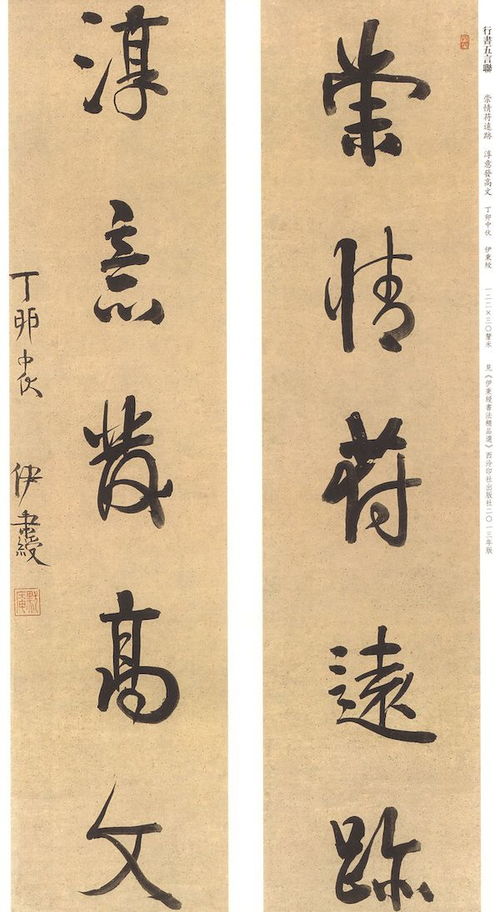 行書五言聯 崇情苻遠跡 淳意發高文 丁卯中伏 伊秉綬 一二二×三〇釐米 見《伊秉綬書法精品選》西泠印社出版社二〇一三年版
崇情苻遠跡
淳意發高文
丁卯中伏 伊秉綬